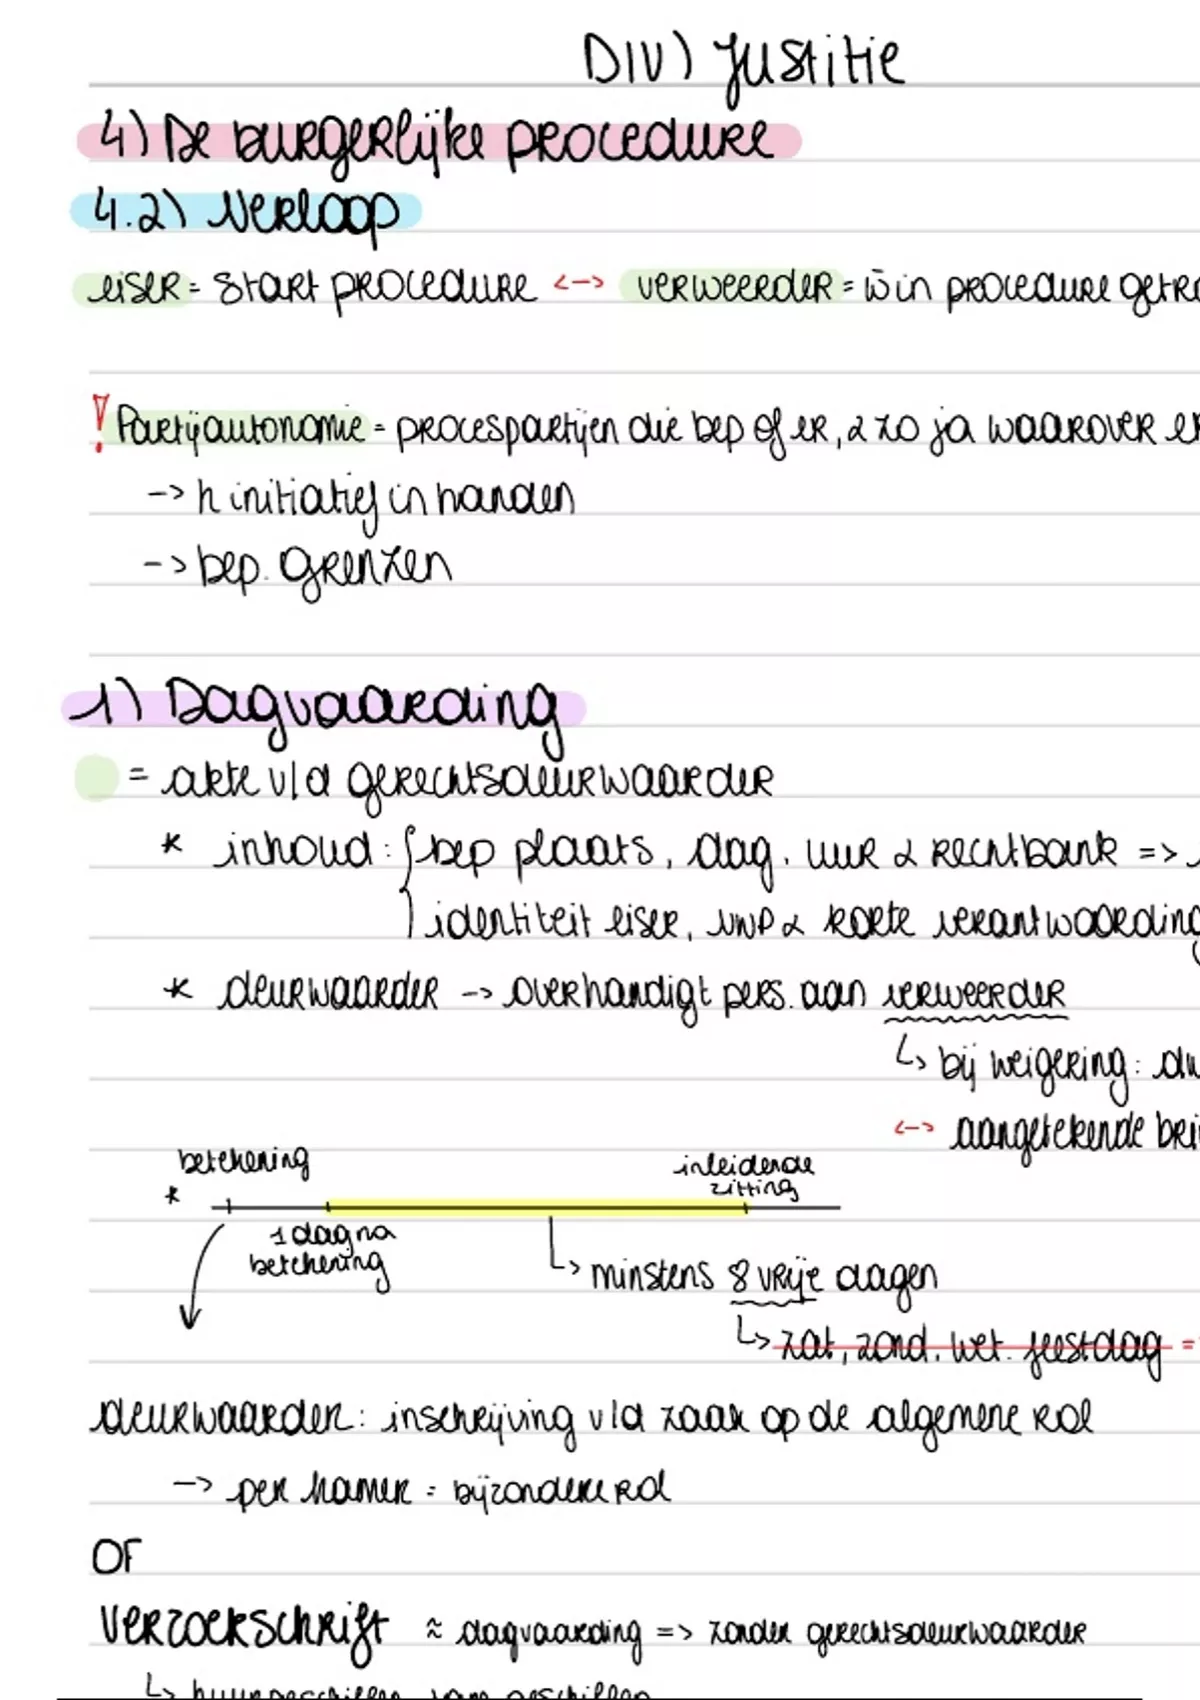 DIV) Justitie
4) De burgerlijke procedure
4.2) Verloop
eiser = start procedure <--> verweerder = w̄ in procedure getro
! Partijautonomie = procespartijen die bep of er, & zo ja waarover er
-> h initiatief in handen
-> bep. grenzen
1) Dagvaarding
= akte v/d gerechtsdeurwaarder
* inhoud: { bep plaats, dag, uur & rechtbank =>
identiteit eiser, vwp & korte verantwoording
* deurwaarder -> overhandigt pers. aan verweerder
↳ bij weigering:
<--> aangetekende bri
betekening
inleidende zitting
*
1 dag na betekening
↳ minstens 8 vrije dagen
↳ zat, zond, wet. feestdag =
deurwaarder: inschrijving v/d zaak op de algemene rol
-> per kamer = bijzondere rol
OF
Verzoekschrift ≈ dagvaarding => zonder gerechtsdeurwaarder
↳ huurgeschillen, geschillen